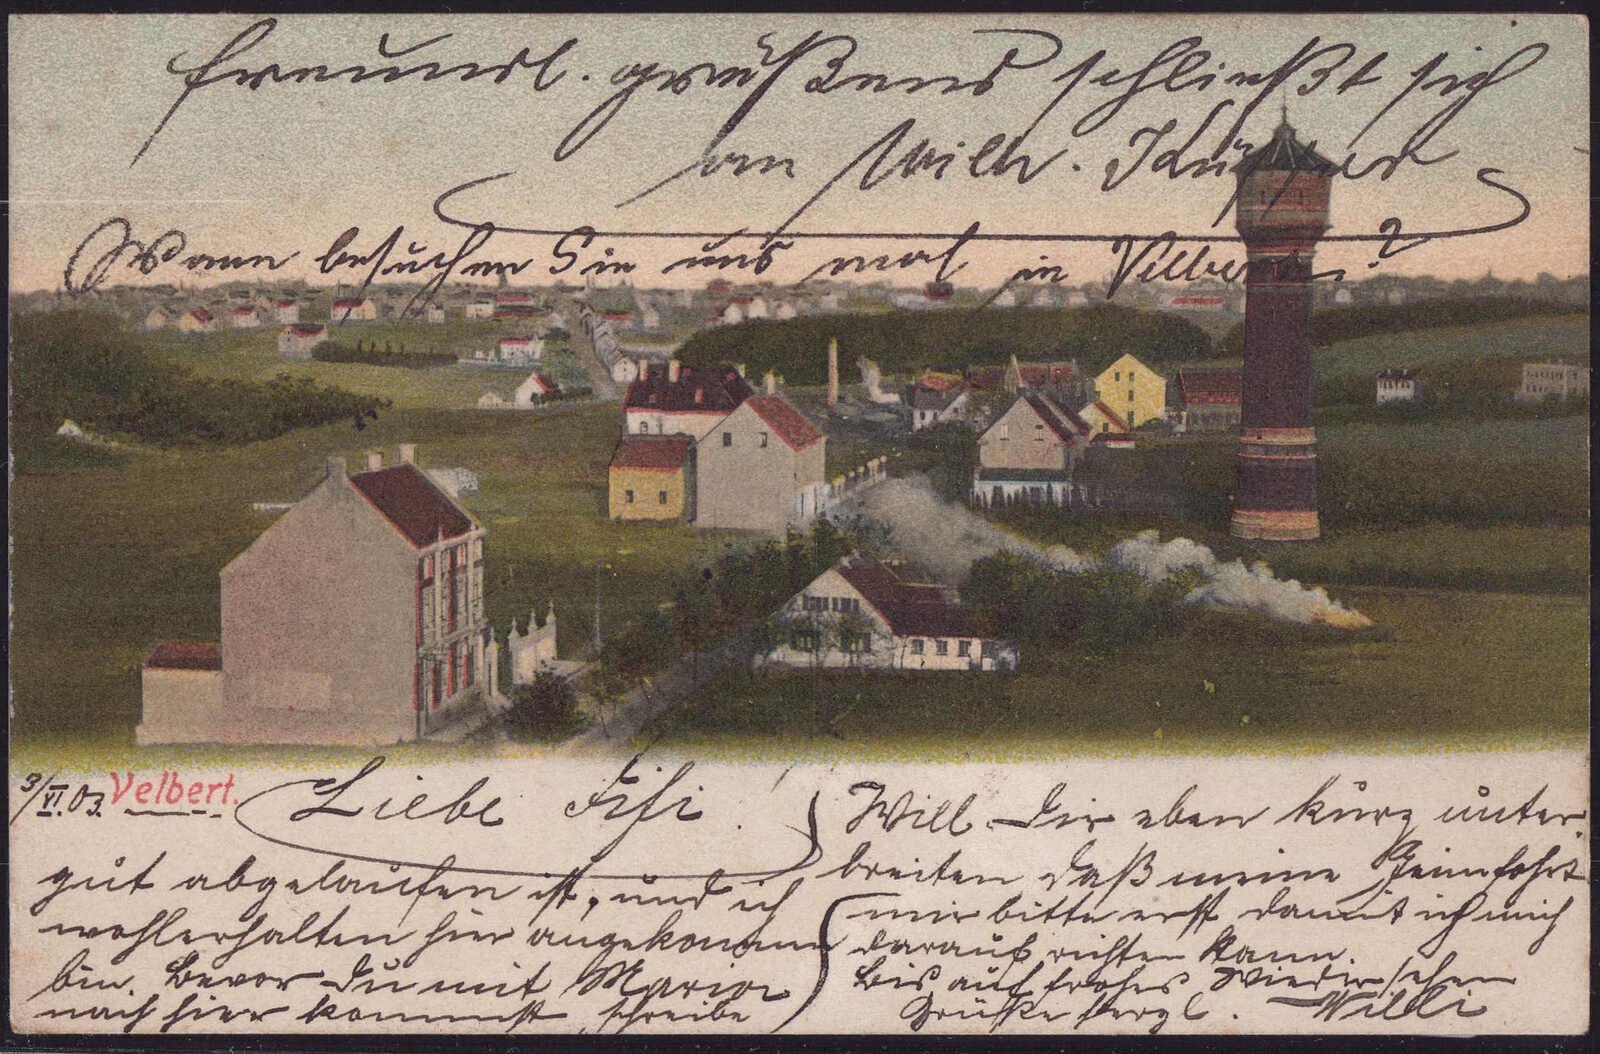 freundl. grüßend schließt sich
an Wilh. Küpper
Wann besuchen Sie uns mal in Velbert?
3/VI.03. Velbert.
Liebe Fifi!
Will Dir eben kurz unter-
breiten daß meine Heimfahrt
gut abgelaufen ist, und ich
wohlerhalten hier angekommen
bin. Bevor Du mit Maria
nach hier kommst, schreibe
mir bitte erst damit ich mich
darauf richten kann.
Bis auf frohes Wiedersehen
Grüße herzl. Willi